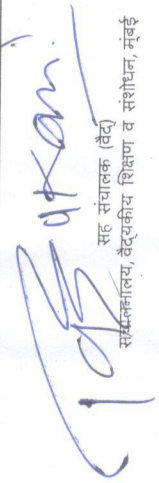 सह संचालक (वैद्य)
संचालनालय, वैद्यकीय शिक्षण व संशोधन, मुंबई